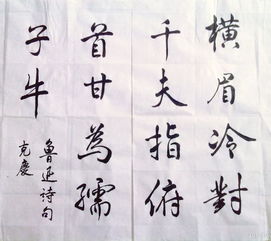 橫眉冷對
千夫指俯
首甘為孺
子牛
魯迅詩句
克慶